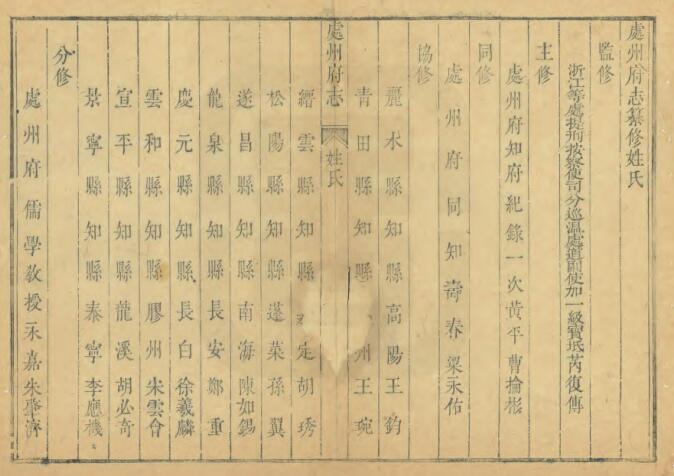 處州府志纂修姓氏
監修
浙江等處提刑按察使司分巡溫處道副使加一級寶坻芮復傳
主修
處州府知府紀錄一次黃平曹掄彬
同修
處州府同知壽春梁永佑
協修
麗水縣知縣高陽王鈞
青田縣知縣 州王琬
處州府志 姓氏
縉雲縣知縣 定胡琇
松陽縣知縣蓬萊孫翼
遂昌縣知縣南海陳如錫
龍泉縣知縣長安鄭重
慶元縣知縣長白徐羲麟
雲和縣知縣膠州宋雲會
宣平縣知縣龍溪胡必奇
景寧縣知縣泰寧李應機
分修
處州府儒學教授永嘉朱肇濟